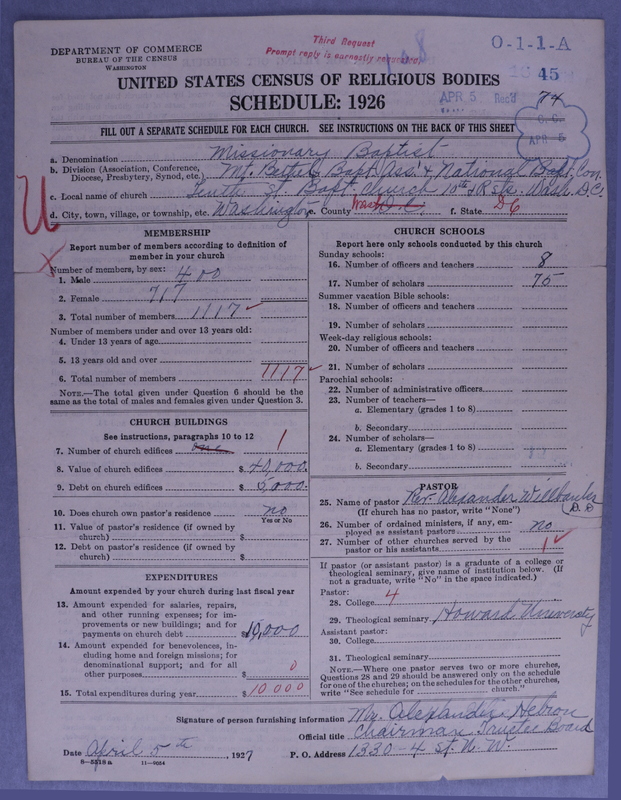 Third Request
Prompt reply is earnestly requested.
O-1-1-A
DEPARTMENT OF COMMERCE
BUREAU OF THE CENSUS
WASHINGTON
45
UNITED STATES CENSUS OF RELIGIOUS BODIES
APR 5 Rec'd 74
SCHEDULE: 1926
APR 5
FILL OUT A SEPARATE SCHEDULE FOR EACH CHURCH. SEE INSTRUCTIONS ON THE BACK OF THIS SHEET
a. Denomination Missionary Baptist
b. Division (Association, Conference, Diocese, Presbytery, Synod, etc.) Mt. Bethel Bapt. Ass. & National Bapt. Con.
c. Local name of church Tenth St Bapt. Church 10th & R Sts. Wash. D.C.
d. City, town, village, or township, etc. Washington e. County Wash D.C. f. State DC
MEMBERSHIP
Report number of members according to definition of
member in your church
Number of members, by sex:
1. Male 400
2. Female 717
3. Total number of members 1117
Number of members under and over 13 years old:
4. Under 13 years of age
5. 13 years old and over
6. Total number of members 1117
NOTE.—The total given under Question 6 should be the
same as the total of males and females given under Question 3.
CHURCH BUILDINGS
See instructions, paragraphs 10 to 12
7. Number of church edifices one 1
8. Value of church edifices $ 40,000.
9. Debt on church edifices $ 5,000.
10. Does church own pastor's residence no
Yes or No
11. Value of pastor's residence (if owned by
church) $
12. Debt on pastor's residence (if owned by
church) $
EXPENDITURES
Amount expended by your church during last fiscal year
13. Amount expended for salaries, repairs,
and other running expenses; for im-
provements or new buildings; and for
payments on church debt $10,000
14. Amount expended for benevolences, in-
cluding home and foreign missions; for
denominational support; and for all
other purposes $ 0
15. Total expenditures during year $10000
CHURCH SCHOOLS
Report here only schools conducted by this church
Sunday schools:
16. Number of officers and teachers 8
17. Number of scholars 75
Summer vacation Bible schools:
18. Number of officers and teachers
19. Number of scholars
Week-day religious schools:
20. Number of officers and teachers
21. Number of scholars
Parochial schools:
22. Number of administrative officers
23. Number of teachers—
a. Elementary (grades 1 to 8)
b. Secondary
24. Number of scholars—
a. Elementary (grades 1 to 8)
b. Secondary
PASTOR
25. Name of pastor Rev. Alexander Willbanks
(If church has no pastor, write "None") (D.D
26. Number of ordained ministers, if any, em-
ployed as assistant pastors no
27. Number of other churches served by the
pastor or his assistants 1
If pastor (or assistant pastor) is a graduate of a college or
theological seminary, give name of institution below. (If
not a graduate, write "No" in the space indicated.)
Pastor:
28. College 4
29. Theological seminary Howard University
Assistant pastor:
30. College
31. Theological seminary
NOTE.—Where one pastor serves two or more churches,
Questions 28 and 29 should be answered only on the schedule
for one of the churches; on the schedules for the other churches,
write "See schedule for church."
Signature of person furnishing information Mr. Alexander Hebron
Official title Chairman Trustee Board
Date April 5th, 1927 P. O. Address 1330-4 st. N.W.
8-5518a 11-9034